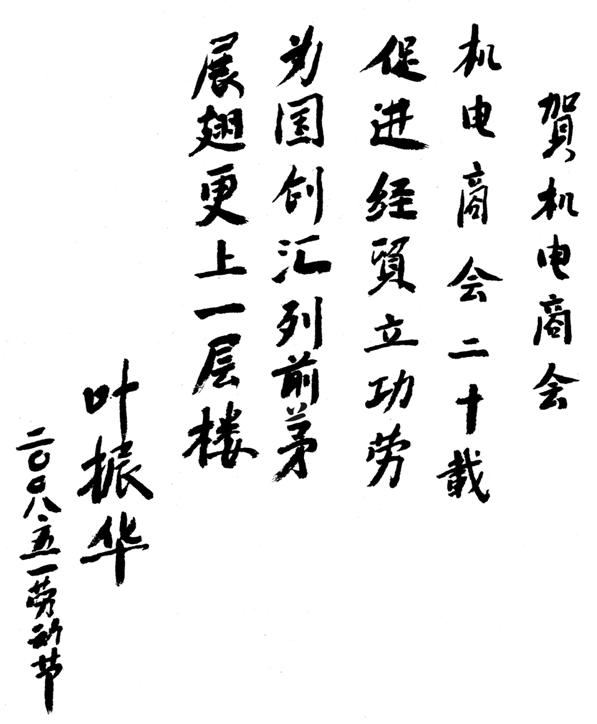 賀机电商会
机电商会二十载
促进经貿立功劳
为国创汇列前茅
展翅更上一层楼
叶振华
二〇〇八.五一劳动节